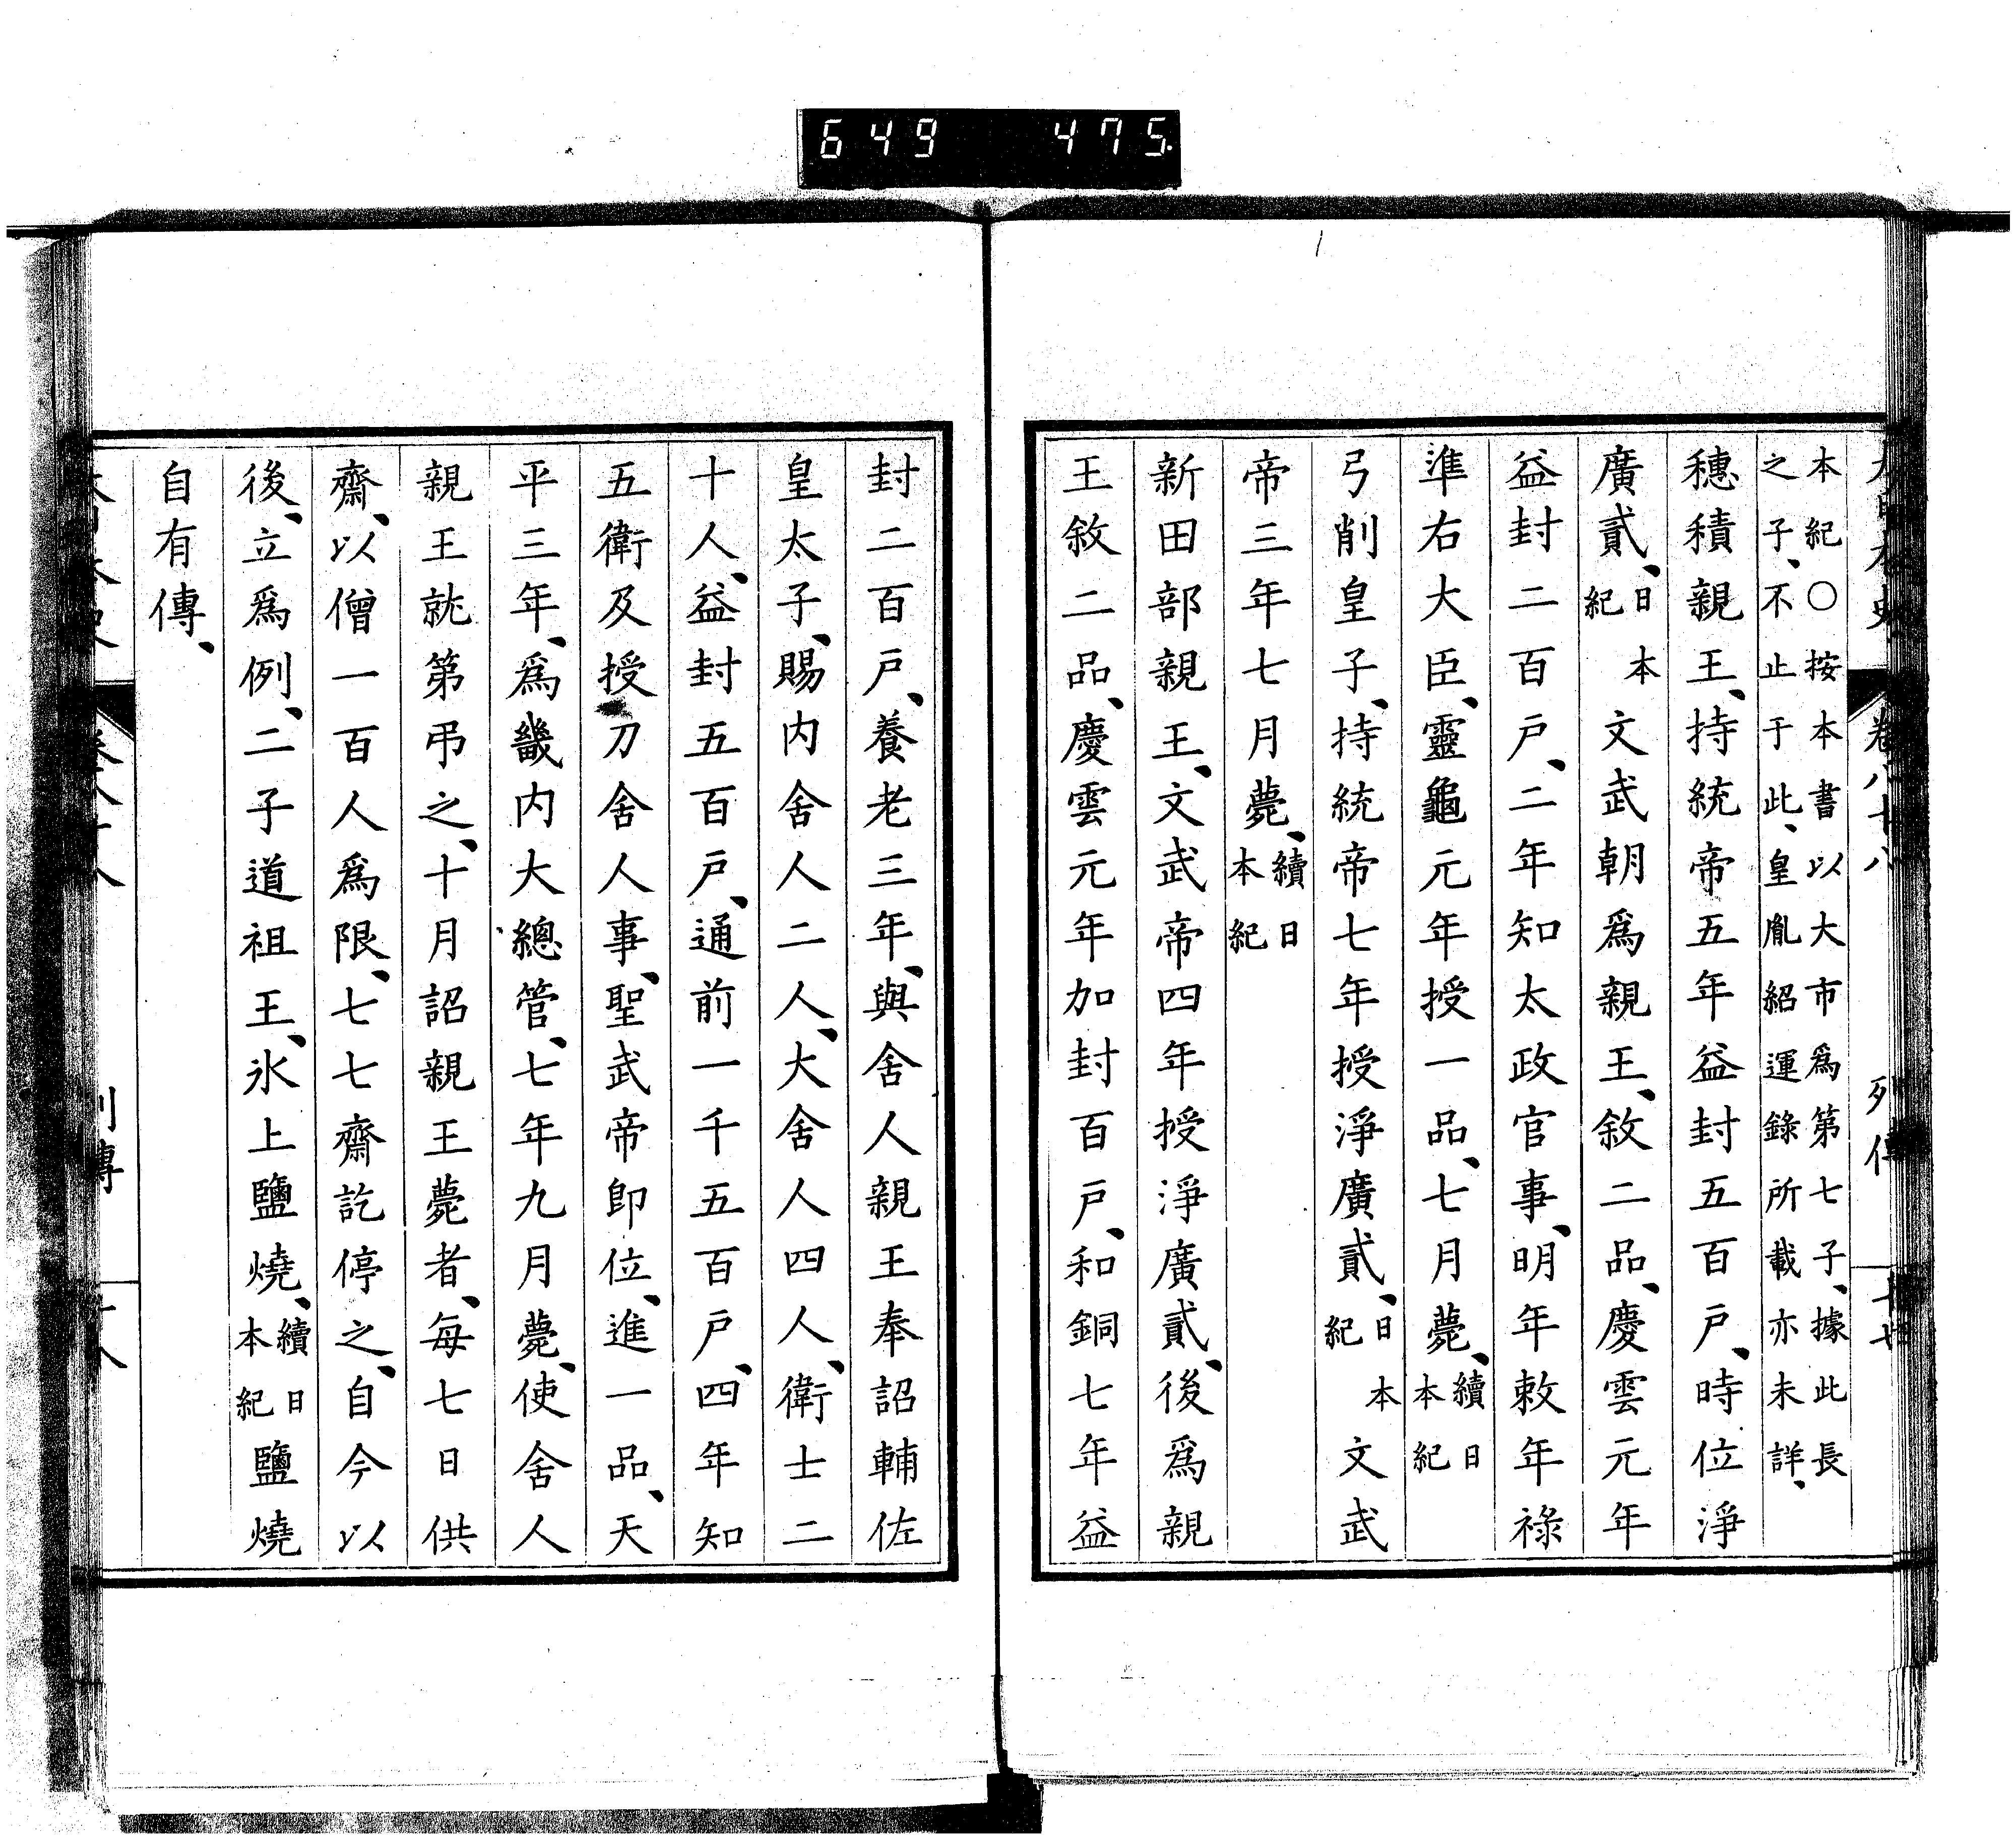 649 475.
大日本史 卷八十八 列傳 七十七
本紀○按本書以大市爲第七子、據此長
之子、不止于此、皇胤紹運錄所載亦未詳、
穗積親王、持統帝五年益封五百戸、時位淨
廣貳、日本紀文武朝爲親王、敘二品、慶雲元年
益封二百戸、二年知太政官事、明年敕年祿
準右大臣、靈龜元年授一品、七月薨、續日本紀
弓削皇子、持統帝七年授淨廣貳、日本紀文武
帝三年七月薨、續日本紀
新田部親王、文武帝四年授淨廣貳、後爲親
王敘二品、慶雲元年加封百戸、和銅七年益
封二百戸、養老三年、與舍人親王奉詔輔佐
皇太子、賜内舍人二人、大舍人四人、衛士二
十人、益封五百戸、通前一千五百戸、四年知
五衛及授刀舍人事、聖武帝卽位、進一品、天
平三年、爲畿内大總管、七年九月薨、使舍人
親王就第弔之、十月詔親王薨者、每七日供
齋、以僧一百人爲限、七七齋訖停之、自今以
後、立爲例、二子道祖王、氷上鹽燒、續日本紀鹽燒
自有傳、
列傳